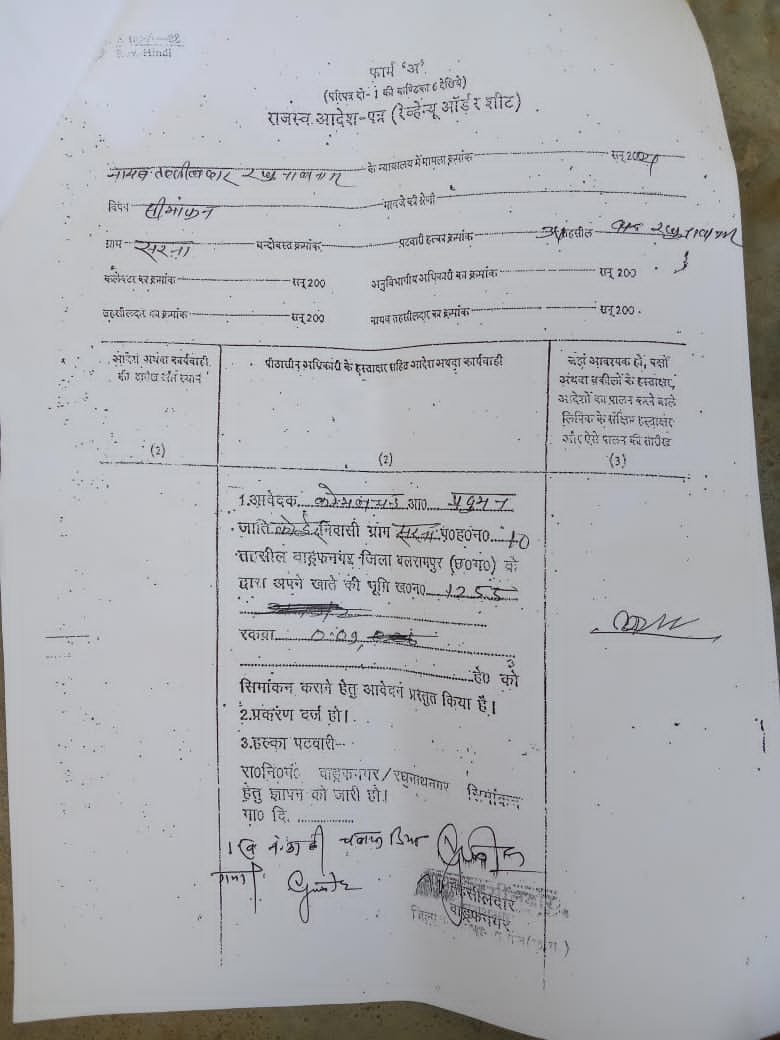 Hindi
फार्म 'अ'
(परिपत्र दो-1 की कण्डिका 6 देखिये)
राजस्व आदेश-पत्र (रेव्हेन्यू ऑर्डर शीट)
नायब तहसीलदार रघुनाथनगर के न्यायालय में मामला क्रमांक सन् 200
विषय सीमांकन मामले की श्रेणी
ग्राम सरना बन्दोबस्त क्रमांक पटवारी हल्का क्रमांक तहसील रघुनाथनगर
कलेक्टर का क्रमांक सन् 200 अनुविभागीय अधिकारी का क्रमांक सन् 200
तहसीलदार का क्रमांक सन् 200 नायब तहसीलदार का क्रमांक सन् 200.
आदेश अथवा कार्यवाही
पीठासीन अधिकारी के हस्ताक्षर सहित आदेश अथवा कार्यवाही
जहां आवश्यक हो, पक्षों
अथवा वकीलों के हस्ताक्षर,
आदेशों का पालन करने वाले
लिपिक के संक्षिप्त हस्ताक्षर
और ऐसे पालन की तारीख
(2) (2) (3)
1.आवेदक आ०
जाति निवासी ग्राम सरना प०ह०न० 10
तहसील वाड्रफनगर जिला बलरामपुर (छ०ग०) के
द्वारा अपने खाते की भूमि ख०न० 1255
रकबा 0.09
हे० को
सिमांकन कराने हेतु आवेदन प्रस्तुत किया है।
2.प्रकरण दर्ज हो।
3.हल्का पटवारी--
रा०नि०मं० वाड्रफनगर/रघुनाथनगर सिमांकन
हेतु ज्ञापन को जारी हो।
गा० दि.
तहसीलदार
वाड्रफनगर